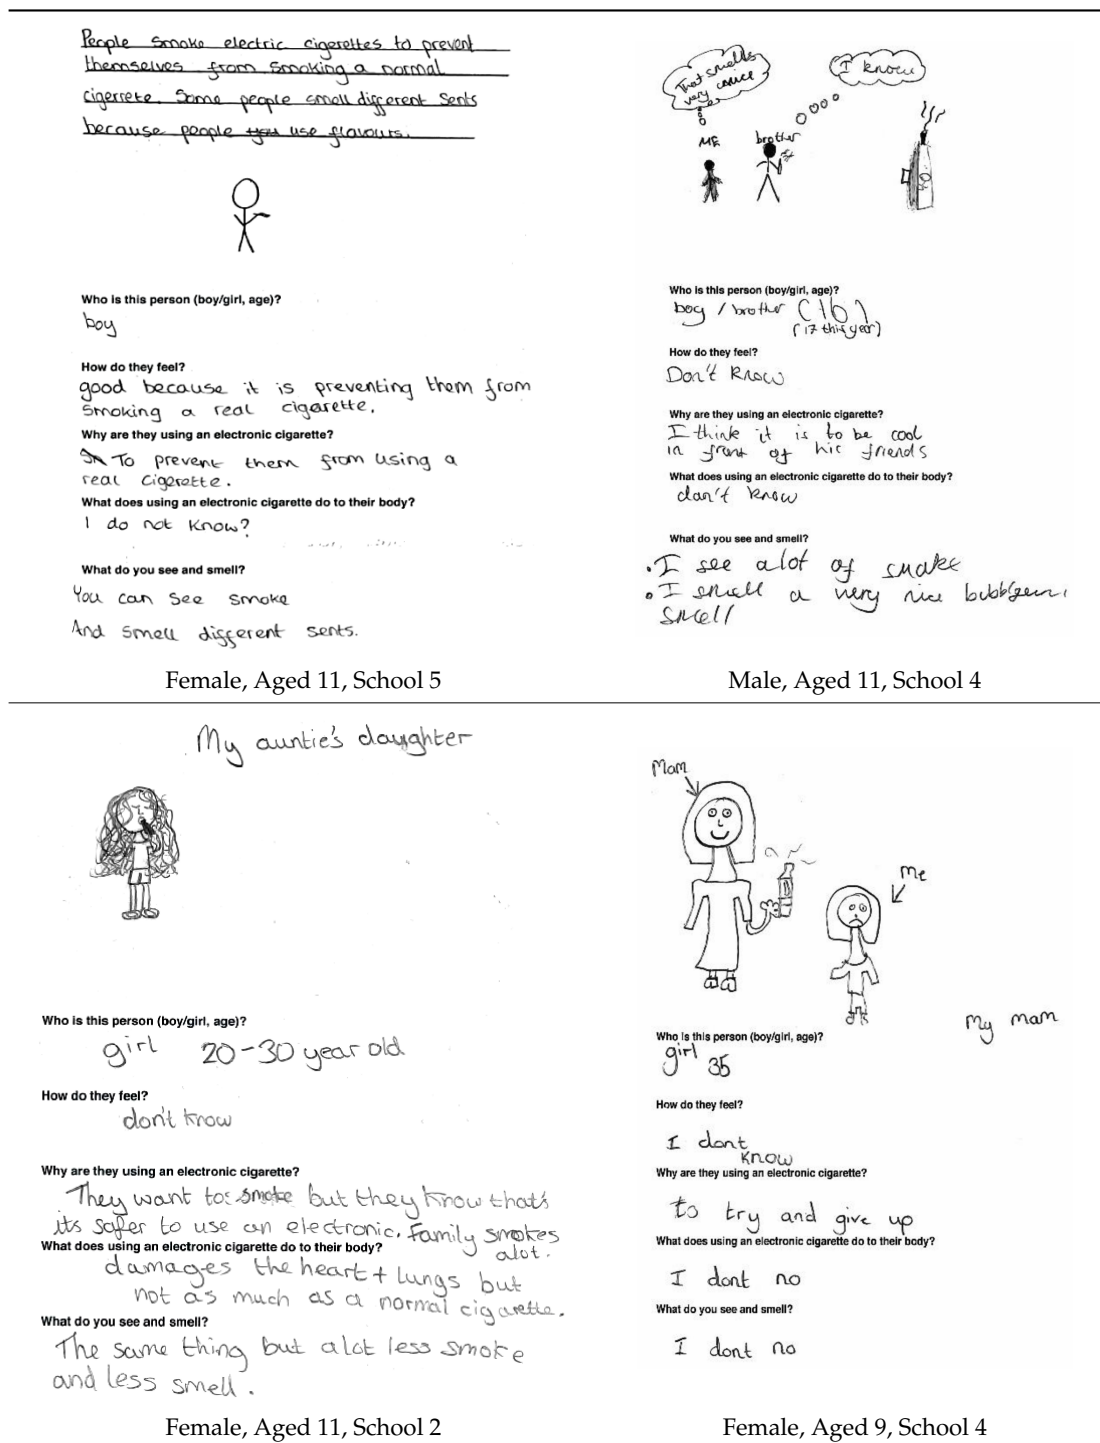 People smoke electric cigerettes to prevent
themselves from smoking a normal
cigerrete. Some people smell different sents
because people you use flavours.
Who is this person (boy/girl, age)?
boy
How do they feel?
good because it is preventing them from
smoking a real cigarette.
Why are they using an electronic cigarette?
To prevent them from using a
real cigerette.
What does using an electronic cigarette do to their body?
I do not know?
What do you see and smell?
You can see smoke
And smell different sents.
Female, Aged 11, School 5
That smells
very
I know
ME
brother
Who is this person (boy/girl, age)?
boy / brother (16)
(17 this year)
How do they feel?
Don't know
Why are they using an electronic cigarette?
I think it is to be cool
in front of his friends
What does using an electronic cigarette do to their body?
don't know
What do you see and smell?
• I see alot of smoke
• I smell a very nice
smell
Male, Aged 11, School 4
My auntie's daughter
Who is this person (boy/girl, age)?
girl 20-30 year old
How do they feel?
don't know
Why are they using an electronic cigarette?
They want to smoke but they know that's
its safer to use an electronic. Family smokes
alot.
What does using an electronic cigarette do to their body?
damages the heart + lungs but
not as much as a normal cigarette.
What do you see and smell?
The same thing but alot less smoke
and less smell.
Female, Aged 11, School 2
Mam
Me
My mam
Who is this person (boy/girl, age)?
girl 35
How do they feel?
I dont
know
Why are they using an electronic cigarette?
to try and give up
What does using an electronic cigarette do to their body?
I dont no
What do you see and smell?
I dont no
Female, Aged 9, School 4